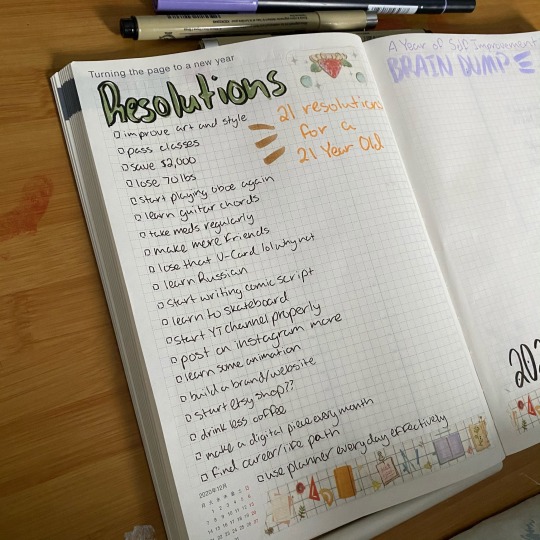 Turning the page to a new year
Resolutions
21 resolutions
for a
21 Year Old
improve art and style
pass classes
save $2,000
lose 70 lbs
start playing oboe again
learn guitar chords
take meds regularly
make more friends
lose that V-Card lol why not
learn Russian
start writing comic script
learn to skateboard
start YT channel properly
post on instagram more
learn some animation
build a brand/website
start Etsy shop??
drink less coffee
make a digital piece every month
find career/life path
use planner everyday effectively
2020年12月
月 火 水 木 金 土 日
A Year of Self Improvement
BRAIN DUMP
202